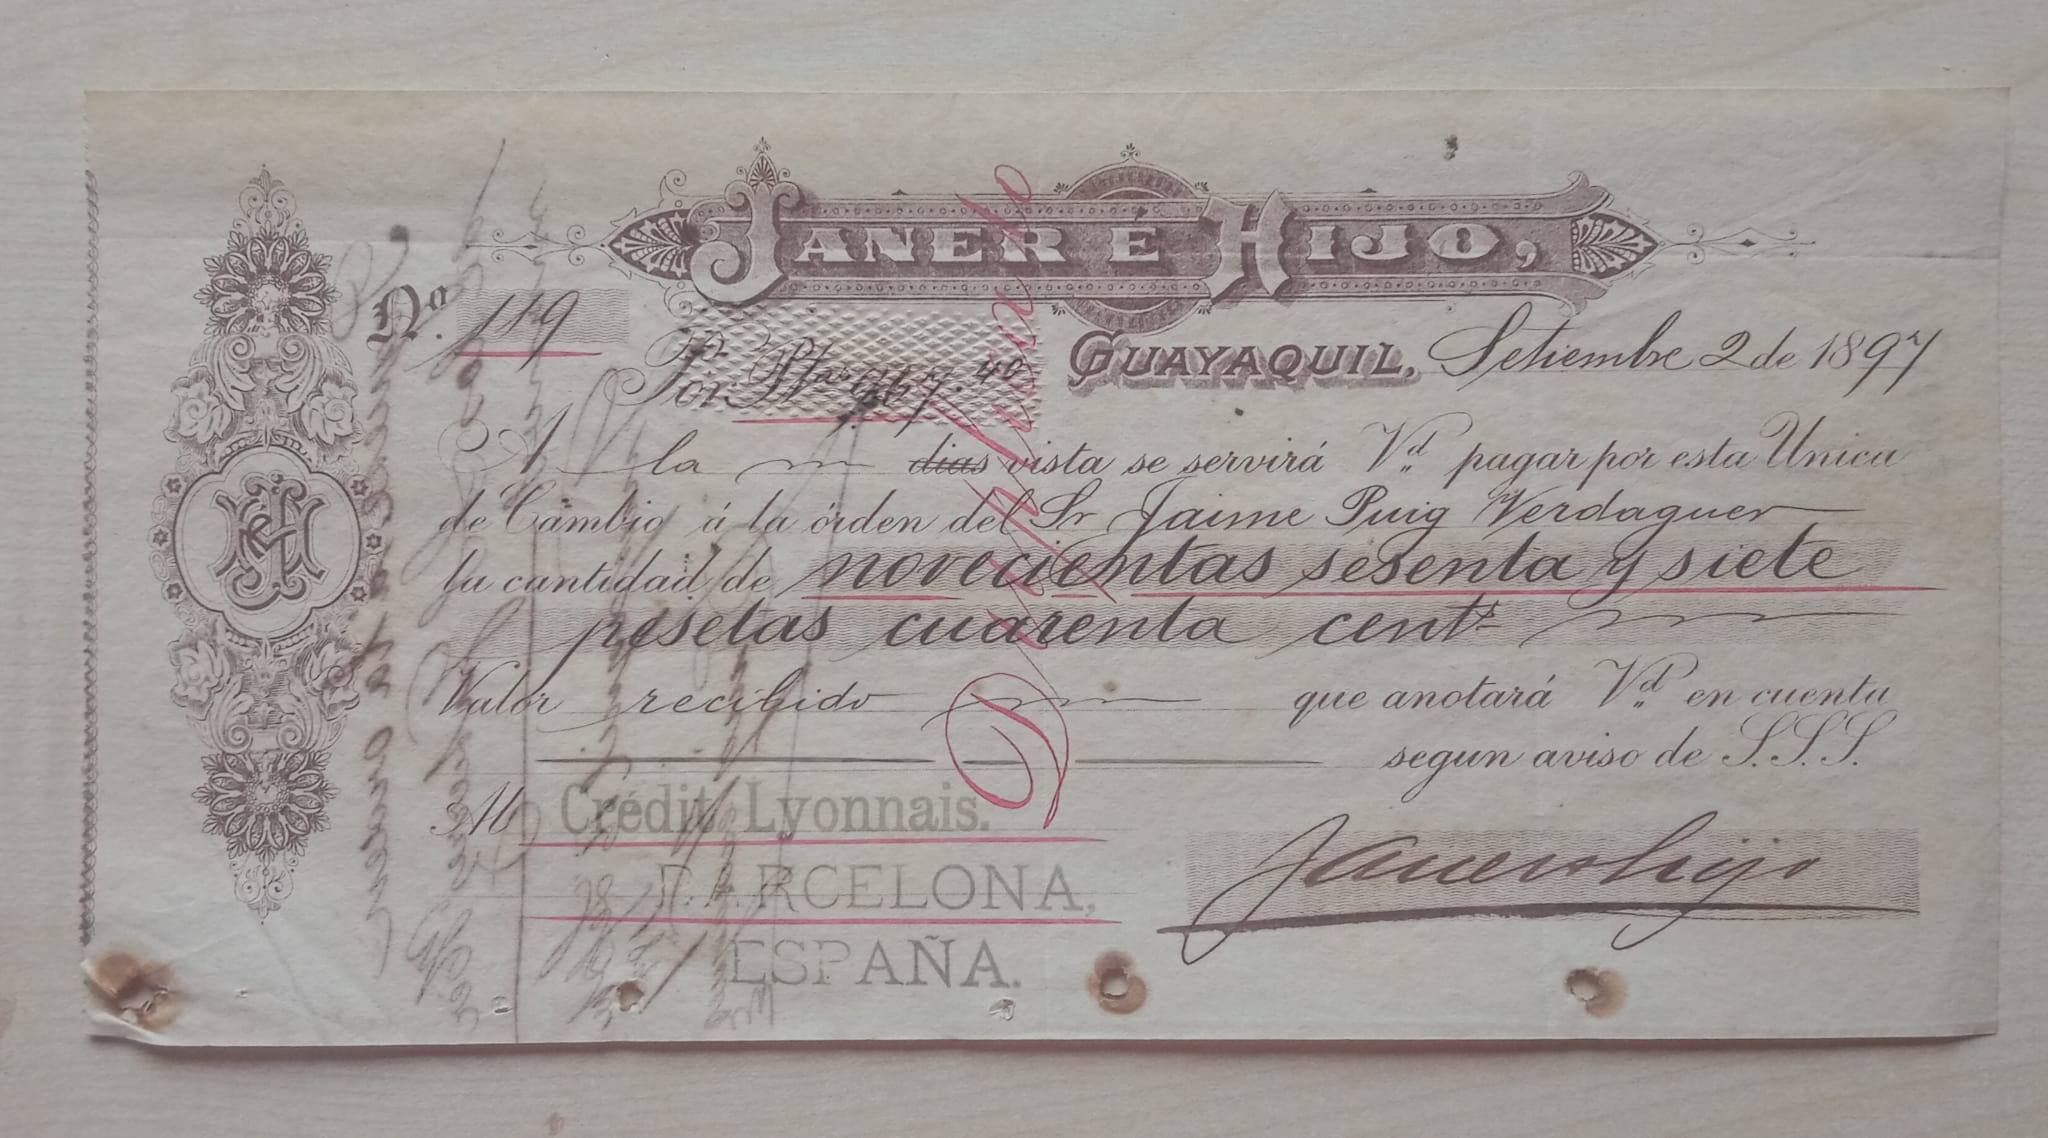 JANER É HIJO,
Nº. 119
Por Ptas 967.40
GUAYAQUIL, Setiembre 2 de 1897
A la dias vista se servirá Vd. pagar por esta Unica
de Cambio á la órden del Sr Jaime Puig Verdaguer
la cantidad de novecientas sesenta y siete
pesetas cuarenta cents
Valor recibido que anotará Vd. en cuenta
segun aviso de S.S.S.
Al Crédit Lyonnais.
BARCELONA,
ESPAÑA.
Janer é hijo